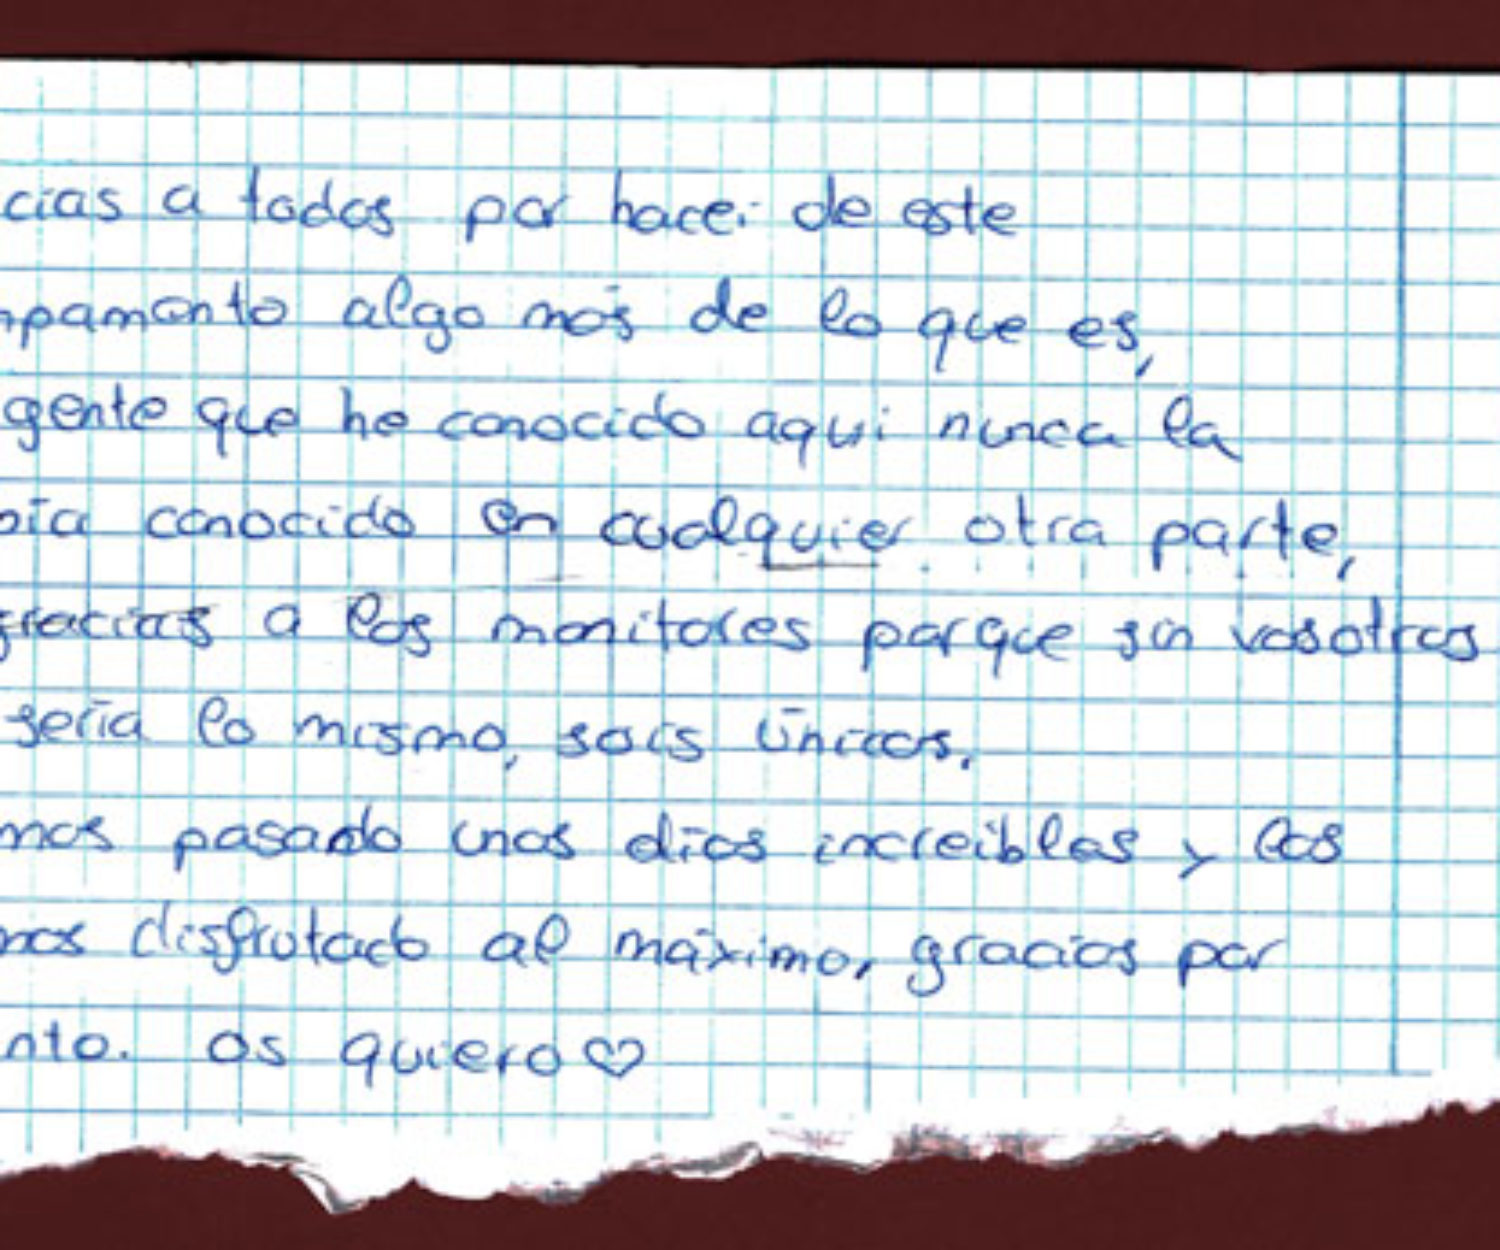 cias a todos por hacer de este
mpamento algo más de lo que es,
gente que he conocido aqui nunca la
bía conocido en cualquier otra parte,
gracias a los monitores porque sin vosotros
sería lo mismo, sois únicos.
mos pasado unos días increibles y los
mos disfrutado al máximo, gracias por
nto. Os quiero ♡